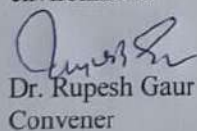 Dr. Rupesh Gaur
Convener